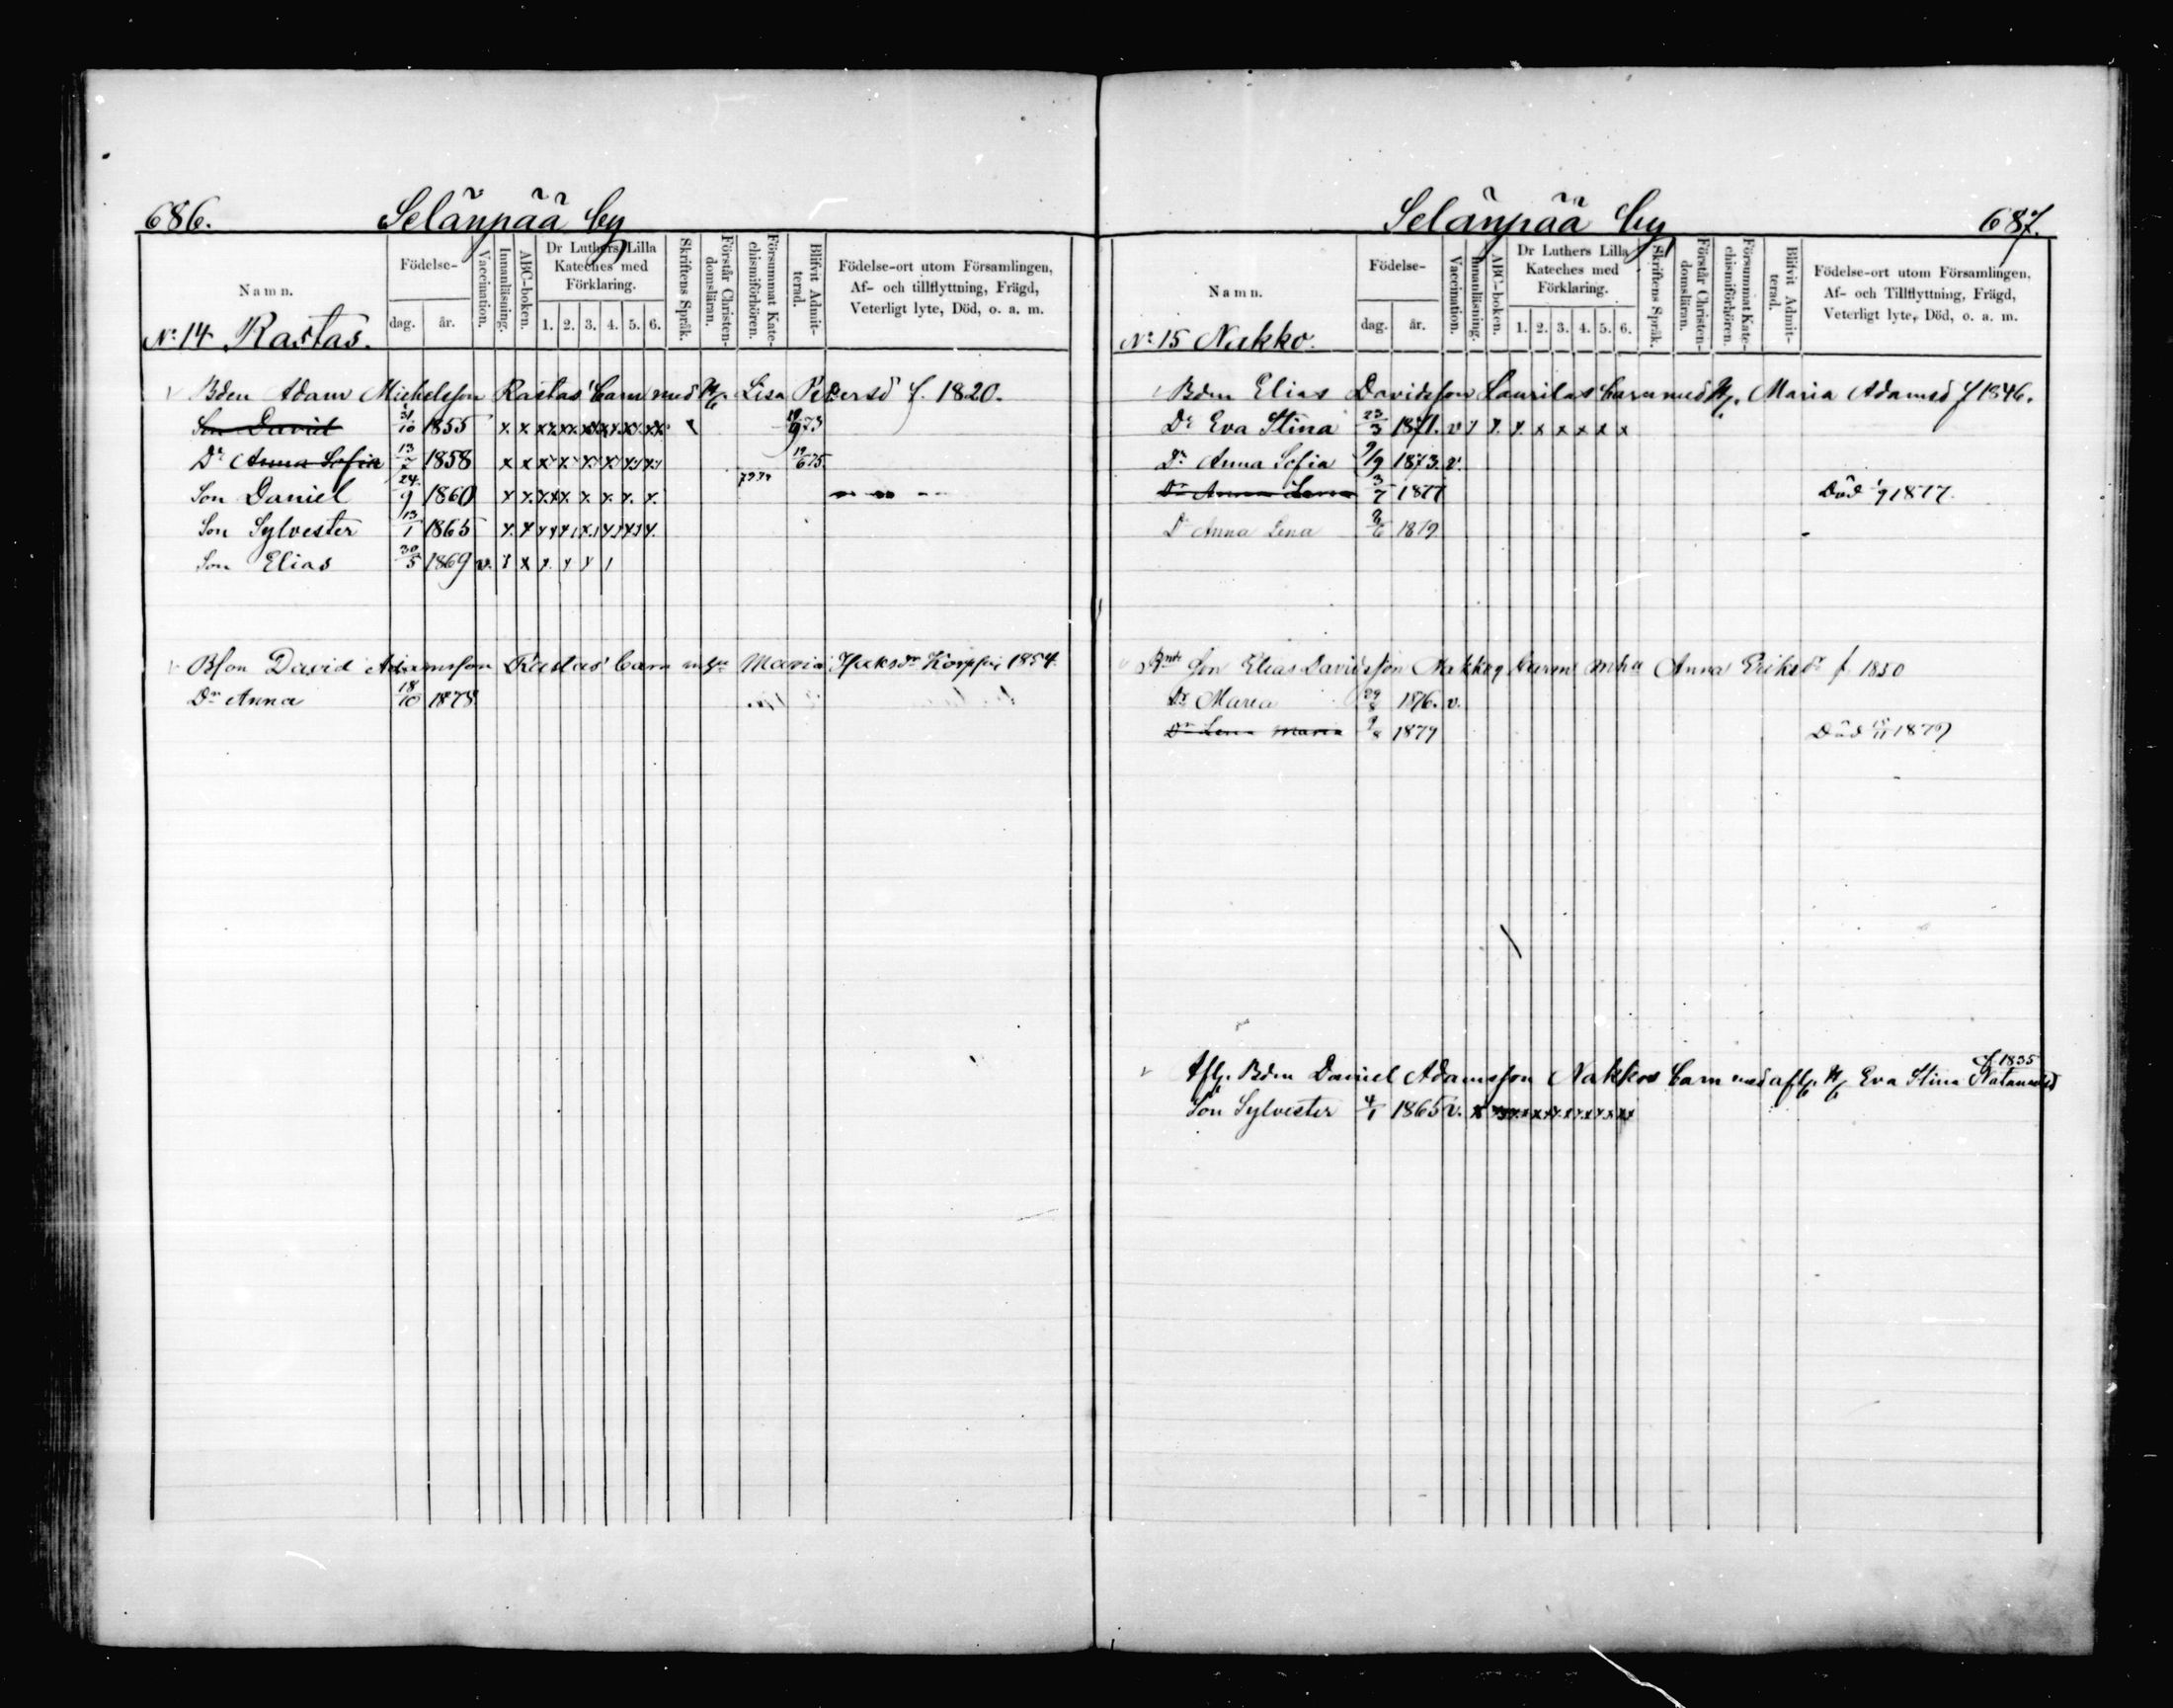 686. Selänpää by
Namn.
Födelse-
dag. år.
Vaccination.
Innanläsning.
ABC-boken.
Dr Luthers Lilla Kateches med Förklaring.
1. 2. 3. 4. 5. 6.
Skriftens Språk.
Förstår Christen-domsläran.
Försummat Kate-chismiförhören.
Blifvit Admit-terad.
Födelse-ort utom Församlingen,
Af- och tillflyttning, Frägd,
Veterligt lyte, Död, o. a. m.
No 14 Rastas.
Bden Adam Michelsson Rastas' barn med H. Lisa Pedersd f. 1820.
Son David 31/10 1855 x x x x x x x x x x 19/9 73
Dr Anna Sofia 13/7 1858 x x x x x x x x 19/6 75.
Son Daniel 24/9 1860 x x x x x x x x x
Son Sylvester 13/1 1865 x x x x x x x x
Son Elias 30/5 1869 v. x x x x x
Bson David Adamsson Rastas' barn m hu Maria Isaksdr Korppi 1854.
Dr Anna 18/10 1878
Selänpää by 687.
Namn.
Födelse-
dag. år.
Vaccination.
Innanläsning.
ABC-boken.
Dr Luthers Lilla Kateches med Förklaring.
1. 2. 3. 4. 5. 6.
Skriftens Språk.
Förstår Christen-domsläran.
Försummat Kate-chismiförhören.
Blifvit Admit-terad.
Födelse-ort utom Församlingen,
Af- och Tillflyttning, Frägd,
Veterligt lyte, Död, o. a. m.
No 15 Nakko.
Bden Elias Davidsson Laurilas barn med H. Maria Adamsd f 1846.
Dr Eva Stina 23/3 1871. v x x x x x x x x
Dr Anna Sofia 9/9 1873. v.
Dr Anna Lena 3/7 1877 Död 1/9 1877.
Dr Anna Lena 8/6 1879
Son Elias Davidsson Nakkos barn m hu Anna Eriksdr f 1850
Dr Maria 1876. v.
Dr Lena Maria 9/8 1879 Död 1879
Afl. Bden Daniel Adamsson Nakkos barn med afl. H Eva Stina Natanaelsd f. 1835
Son Sylvester 4/1 1865 v. x x x x x x x x